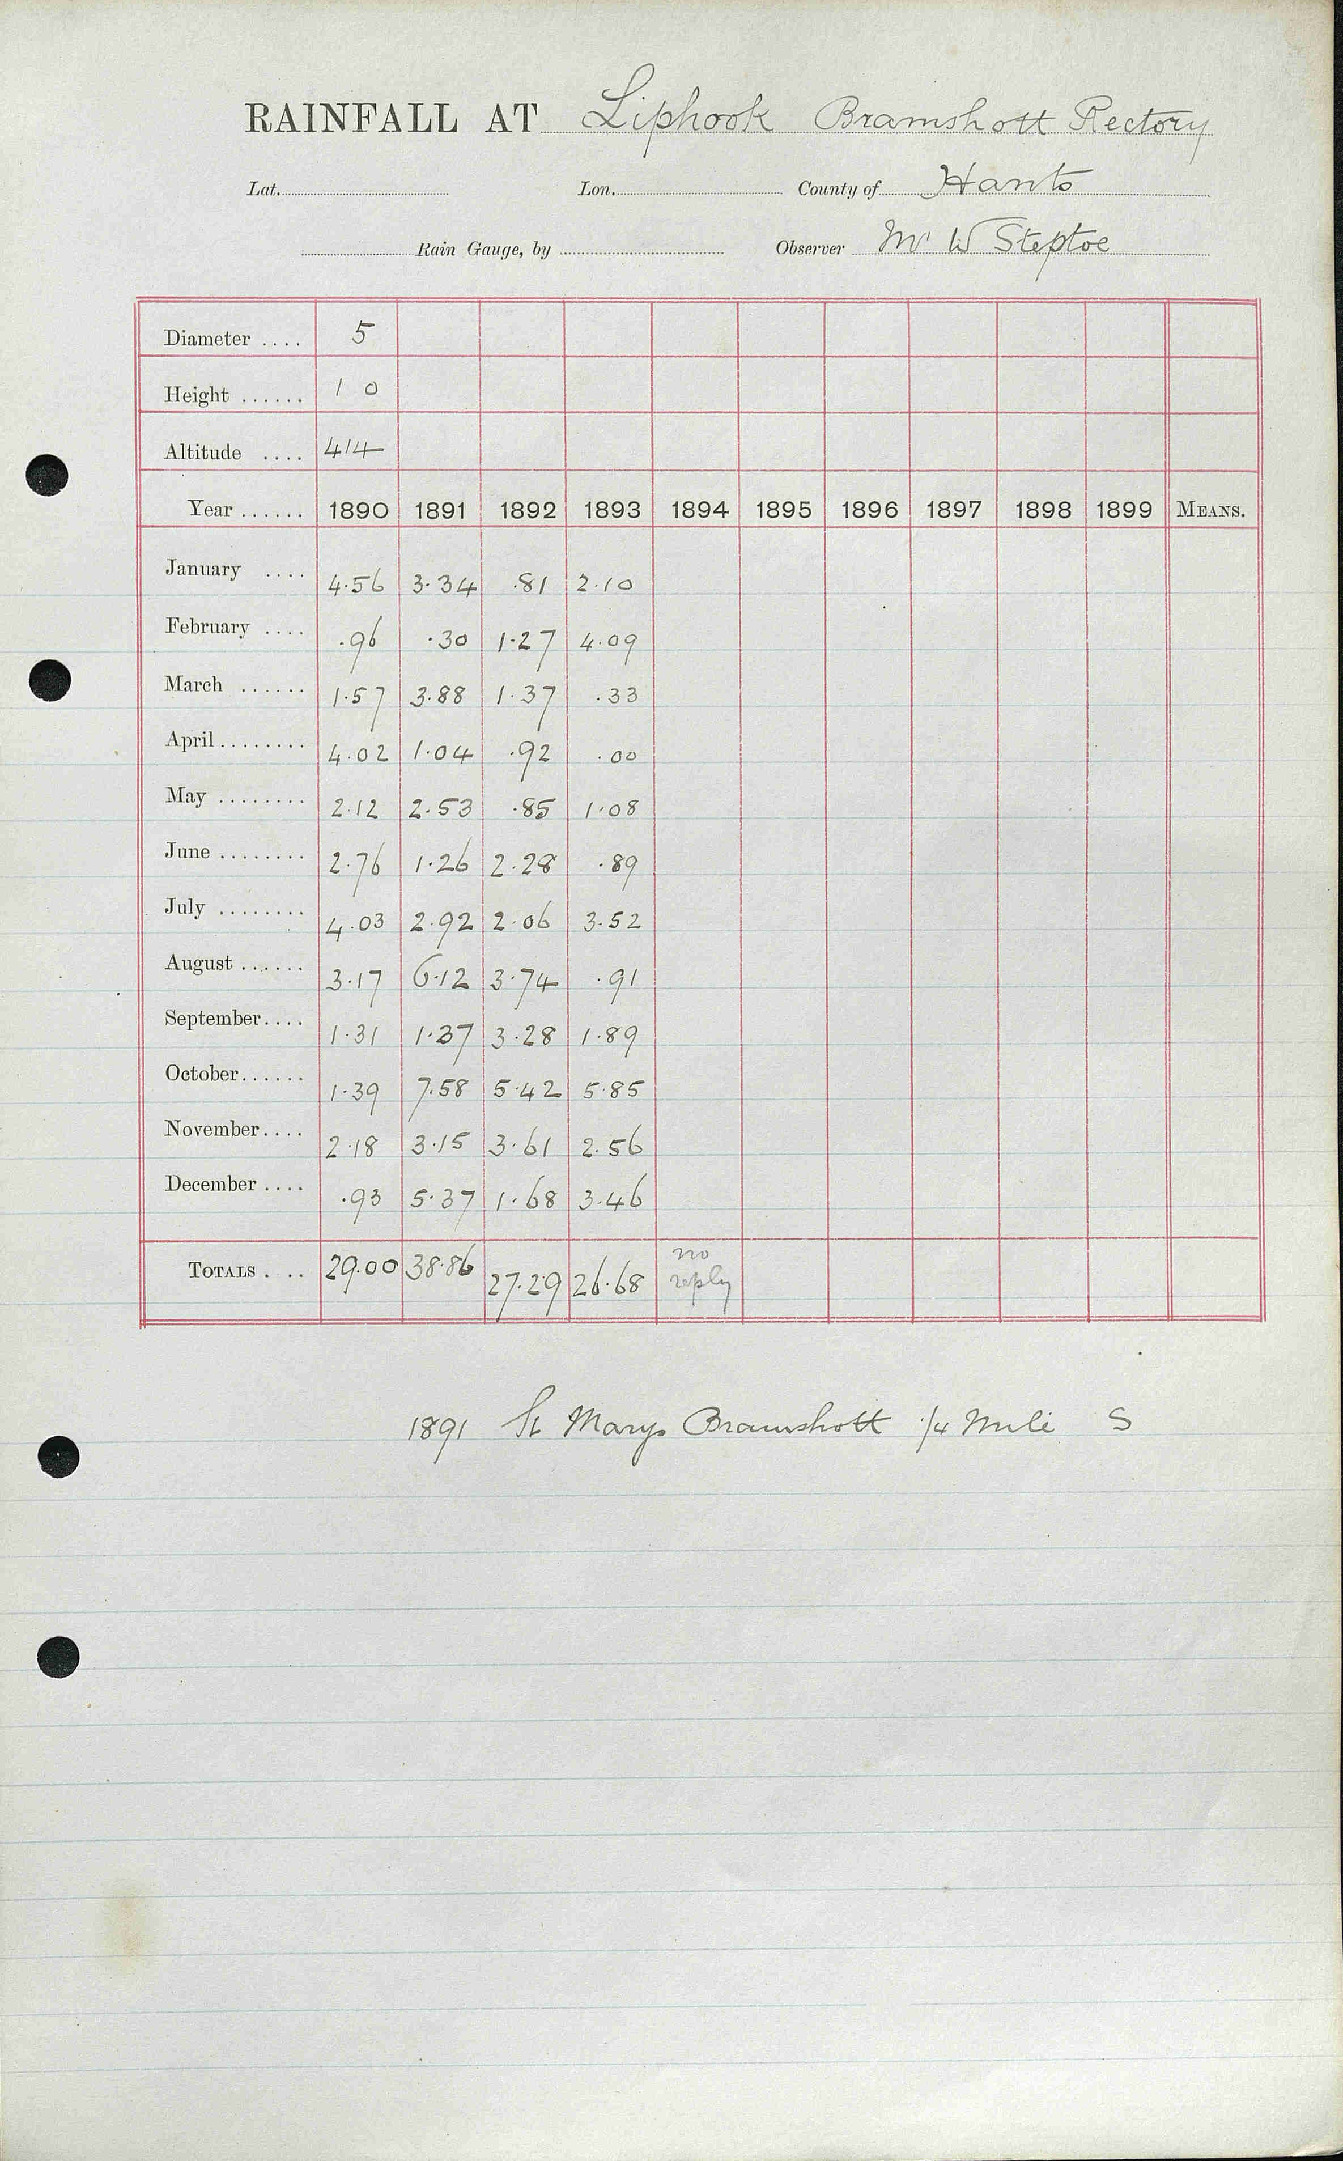 RAINFALL AT Liphook Bramshott Rectory
Lat. Lon. County of Hants
Rain Gauge, by Observer Mr W Steptoe
Diameter .... 5
Height ...... 1 0
Altitude .... 414
Year ...... 1890 1891 1892 1893 1894 1895 1896 1897 1898 1899 MEANS.
January .... 4.56 3.34 .81 2.10
February .... .96 .30 1.27 4.09
March ...... 1.57 3.88 1.37 .33
April ........ 4.02 1.04 .92 .00
May ........ 2.12 2.53 .85 1.08
June ........ 2.76 1.26 2.28 .89
July ........ 4.03 2.92 2.06 3.52
August ...... 3.17 6.12 3.74 .91
September .... 1.31 1.37 3.28 1.89
October ...... 1.39 7.58 5.42 5.85
November .... 2.18 3.15 3.61 2.56
December .... .93 5.37 1.68 3.46
TOTALS .... 29.00 38.86 27.29 26.68 no reply
1891 St Marys Bramshott 1/4 Mile S